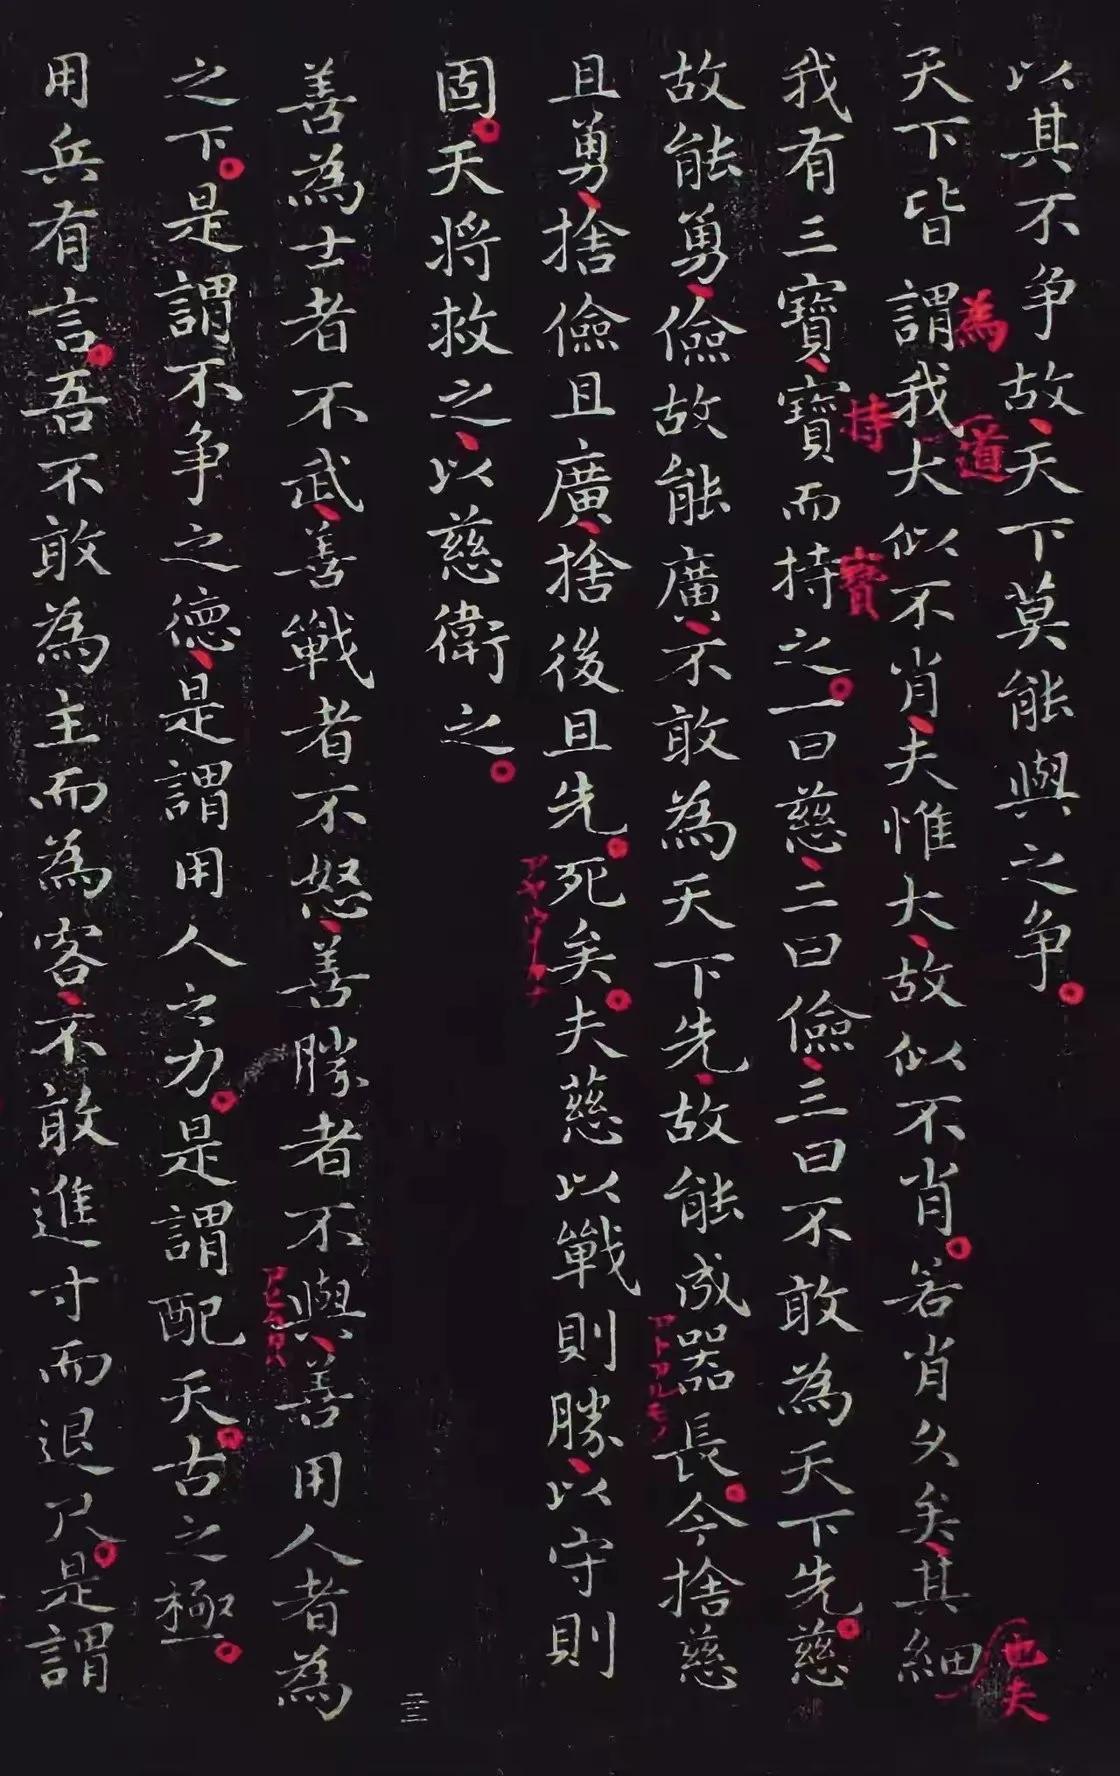 以其不争故天下莫能與之争
天下皆謂我大似不肖夫惟大故似不肖若肖久矣其細
為
道
也夫
我有三寶寶而持之一曰慈二曰儉三曰不敢為天下先慈
持
寶
故能勇儉故能廣不敢為天下先故能成器長今捨慈
且勇捨儉且廣捨後且先死矣夫慈以戰則勝以守則
固天將救之以慈衛之
善為士者不武善戰者不怒善勝者不與善用人者為
之下是謂不争之德是謂用人之力是謂配天古之極
用兵有言吾不敢為主而為客不敢進寸而退尺是謂